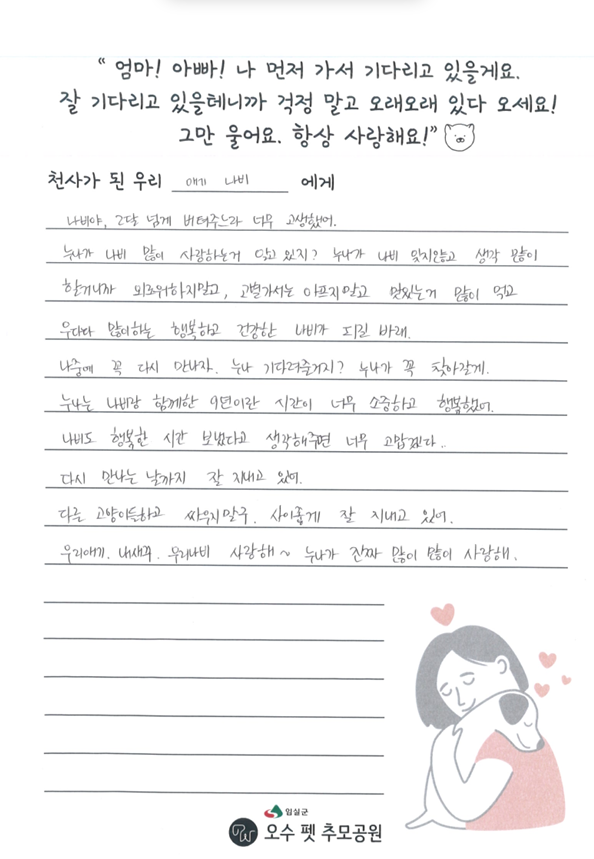 “ 엄마! 아빠! 나 먼저 가서 기다리고 있을게요.
잘 기다리고 있을테니까 걱정 말고 오래오래 있다 오세요!
그만 울어요. 항상 사랑해요!”
천사가 된 우리 애기 나비 에게
나비야, 2달 넘게 버텨주느라 너무 고생했어.
누나가 나비 많이 사랑하는거 알고 있지? 누나가 나비 잊지않고 생각 많이
할거니까 외로워하지말고, 고별가서는 아프지말고 맛있는거 많이 먹고
우다다 많이하는 행복하고 건강한 나비가 되길 바래.
나중에 꼭 다시 만나자. 누나 기다려줄거지? 누나가 꼭 찾아갈게.
누나는 나비랑 함께한 9년이란 시간이 너무 소중하고 행복했어.
나비도 행복한 시간 보냈다고 생각해주면 너무 고맙겠다..
다시 만나는 날까지 잘 지내고 있어.
다른 고양이들하고 싸우지말구. 사이좋게 잘 지내고 있어.
우리애기. 내새꾸. 우리나비 사랑해~ 누나가 진짜 많이 많이 사랑해.
임실군
오수 펫 추모공원